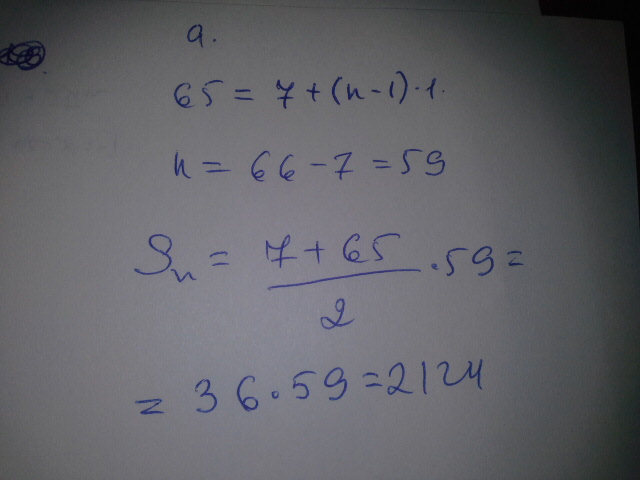 a.
65 = 7 + (n - 1) · 1.
n = 66 - 7 = 59
Sₙ = \frac{7 + 65}{2} · 59 =
= 36 · 59 = 2124